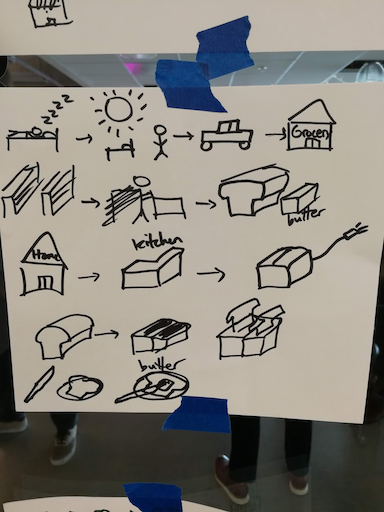 zzzz
Grocery
butter
Home
kitchen
butter